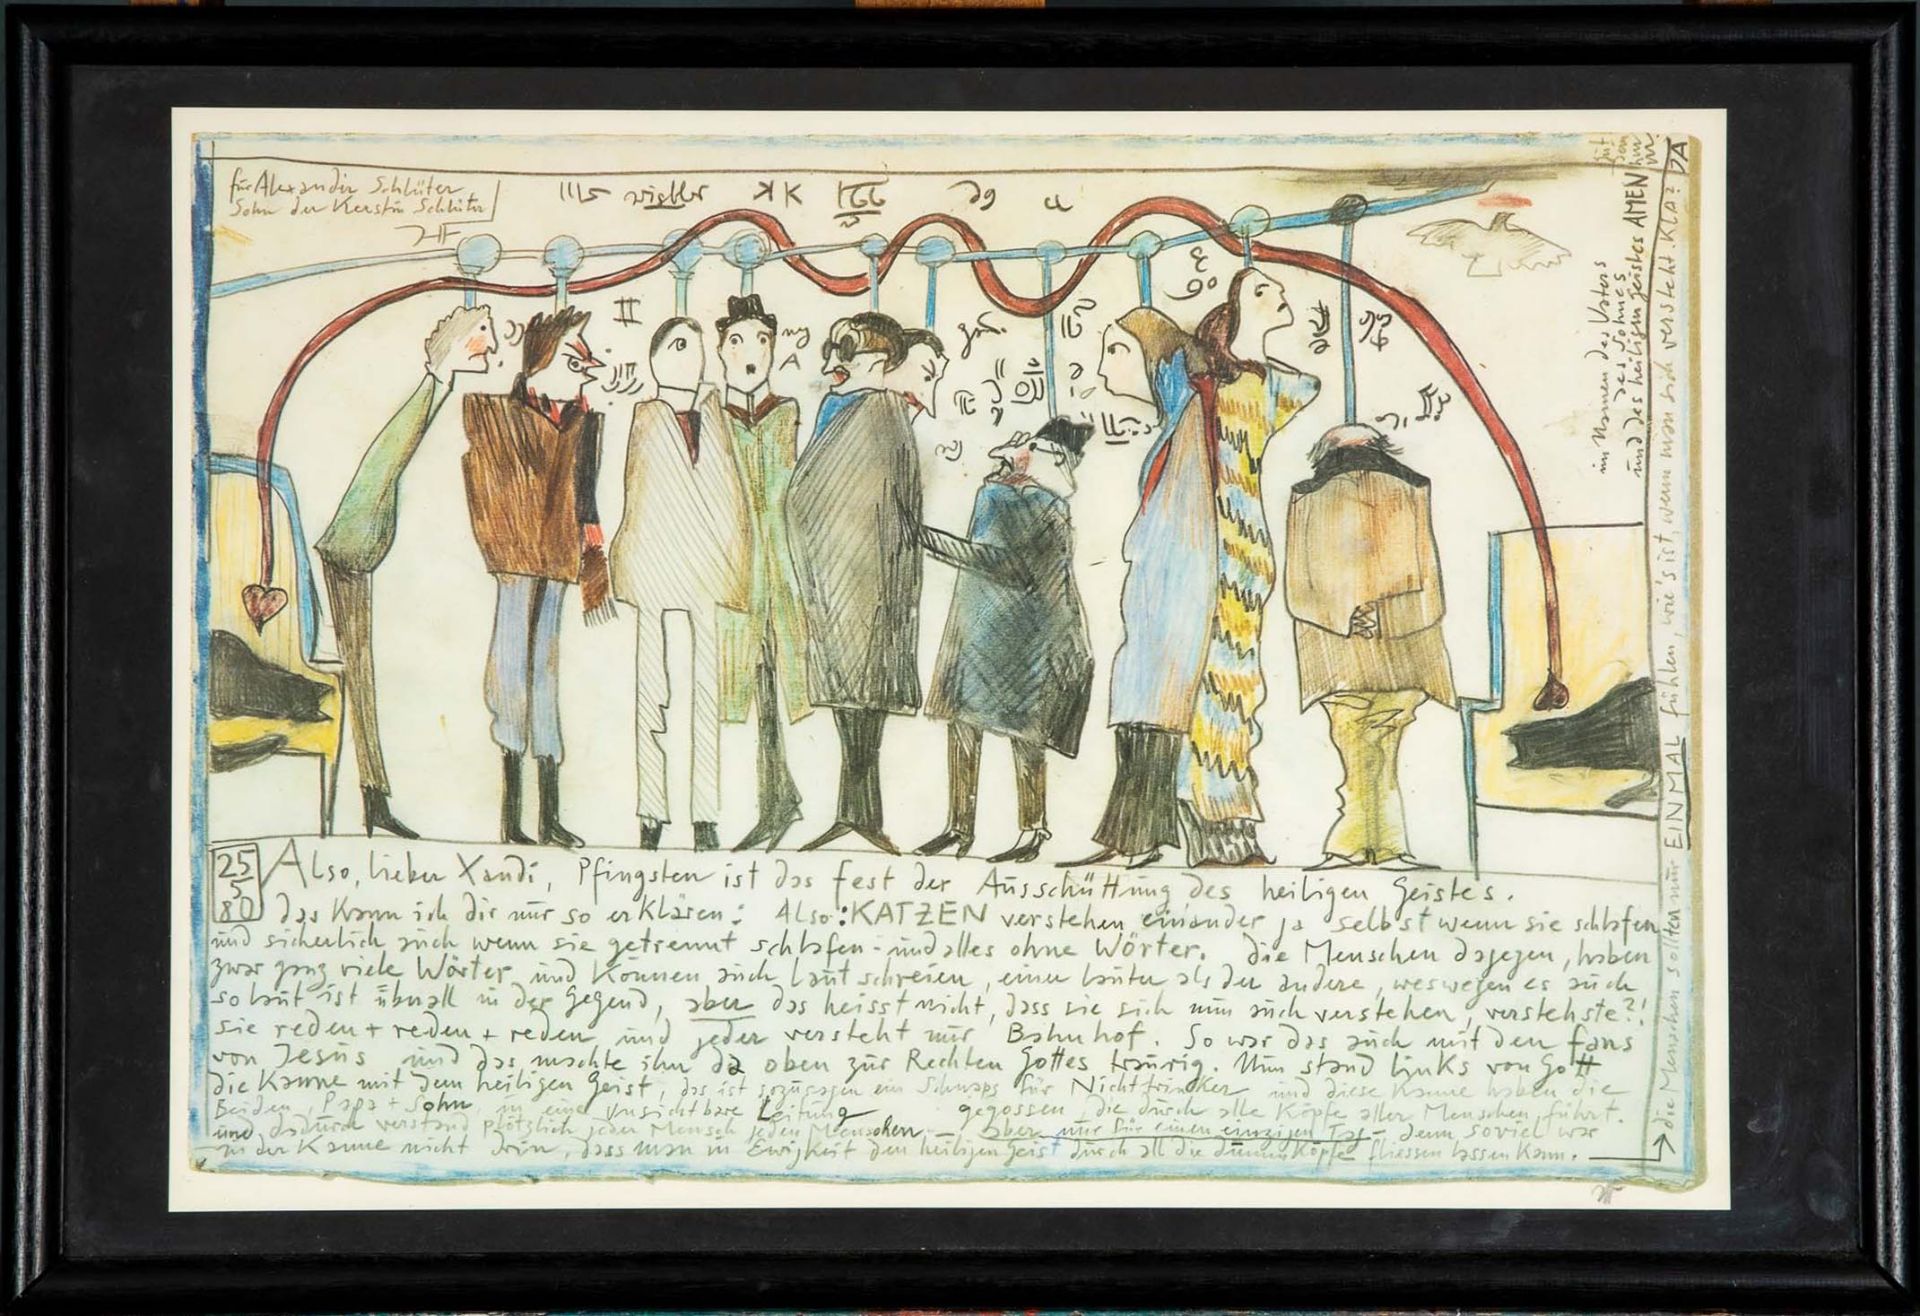 für Alexander Schlüter
Sohn der Kerstin Schlüter
25
5
80
Also, lieber Xandi, Pfingsten ist das Fest der Ausschüttung des heiligen Geistes.
das kann ich dir nur so erklären: Also: KATZEN verstehen einander ja selbst wenn sie schlafen
und sicherlich auch wenn sie getrennt schlafen - und alles ohne Wörter. Die Menschen dagegen, haben
zwar ganz viele Wörter und können auch laut schreien, einer lauter als der andere, weswegen es auch
so laut ist überall in der Gegend, aber das heisst nicht, dass sie sich nun auch verstehen, verstehste?!
sie reden + reden + reden und jeder versteht nur Bahnhof. So war das auch mit den Fans
von Jesus und das machte ihn da oben zur Rechten Gottes traurig. Nun stand links von Gott
die Kanne mit dem heiligen Geist, das ist sozusagen ein Schnaps für Nichttrinker und diese Kanne haben die
Beiden, Papa + Sohn, in eine unsichtbare Leitung gegossen, die durch alle Köpfe aller Menschen führt.
und dadurch verstand plötzlich jeder Mensch jeden Menschen - aber nur für einen einzigen Tag - denn soviel war
in der Kanne nicht drin, dass man in Ewigkeit den heiligen Geist durch all die dummen Köpfe fliessen lassen kann.
die Menschen sollten nur EINMAL fühlen, wie's ist, wenn man sich versteht. KLA? JA
im Namen des Vaters
des Sohnes
und des heiligen Geistes AMEN